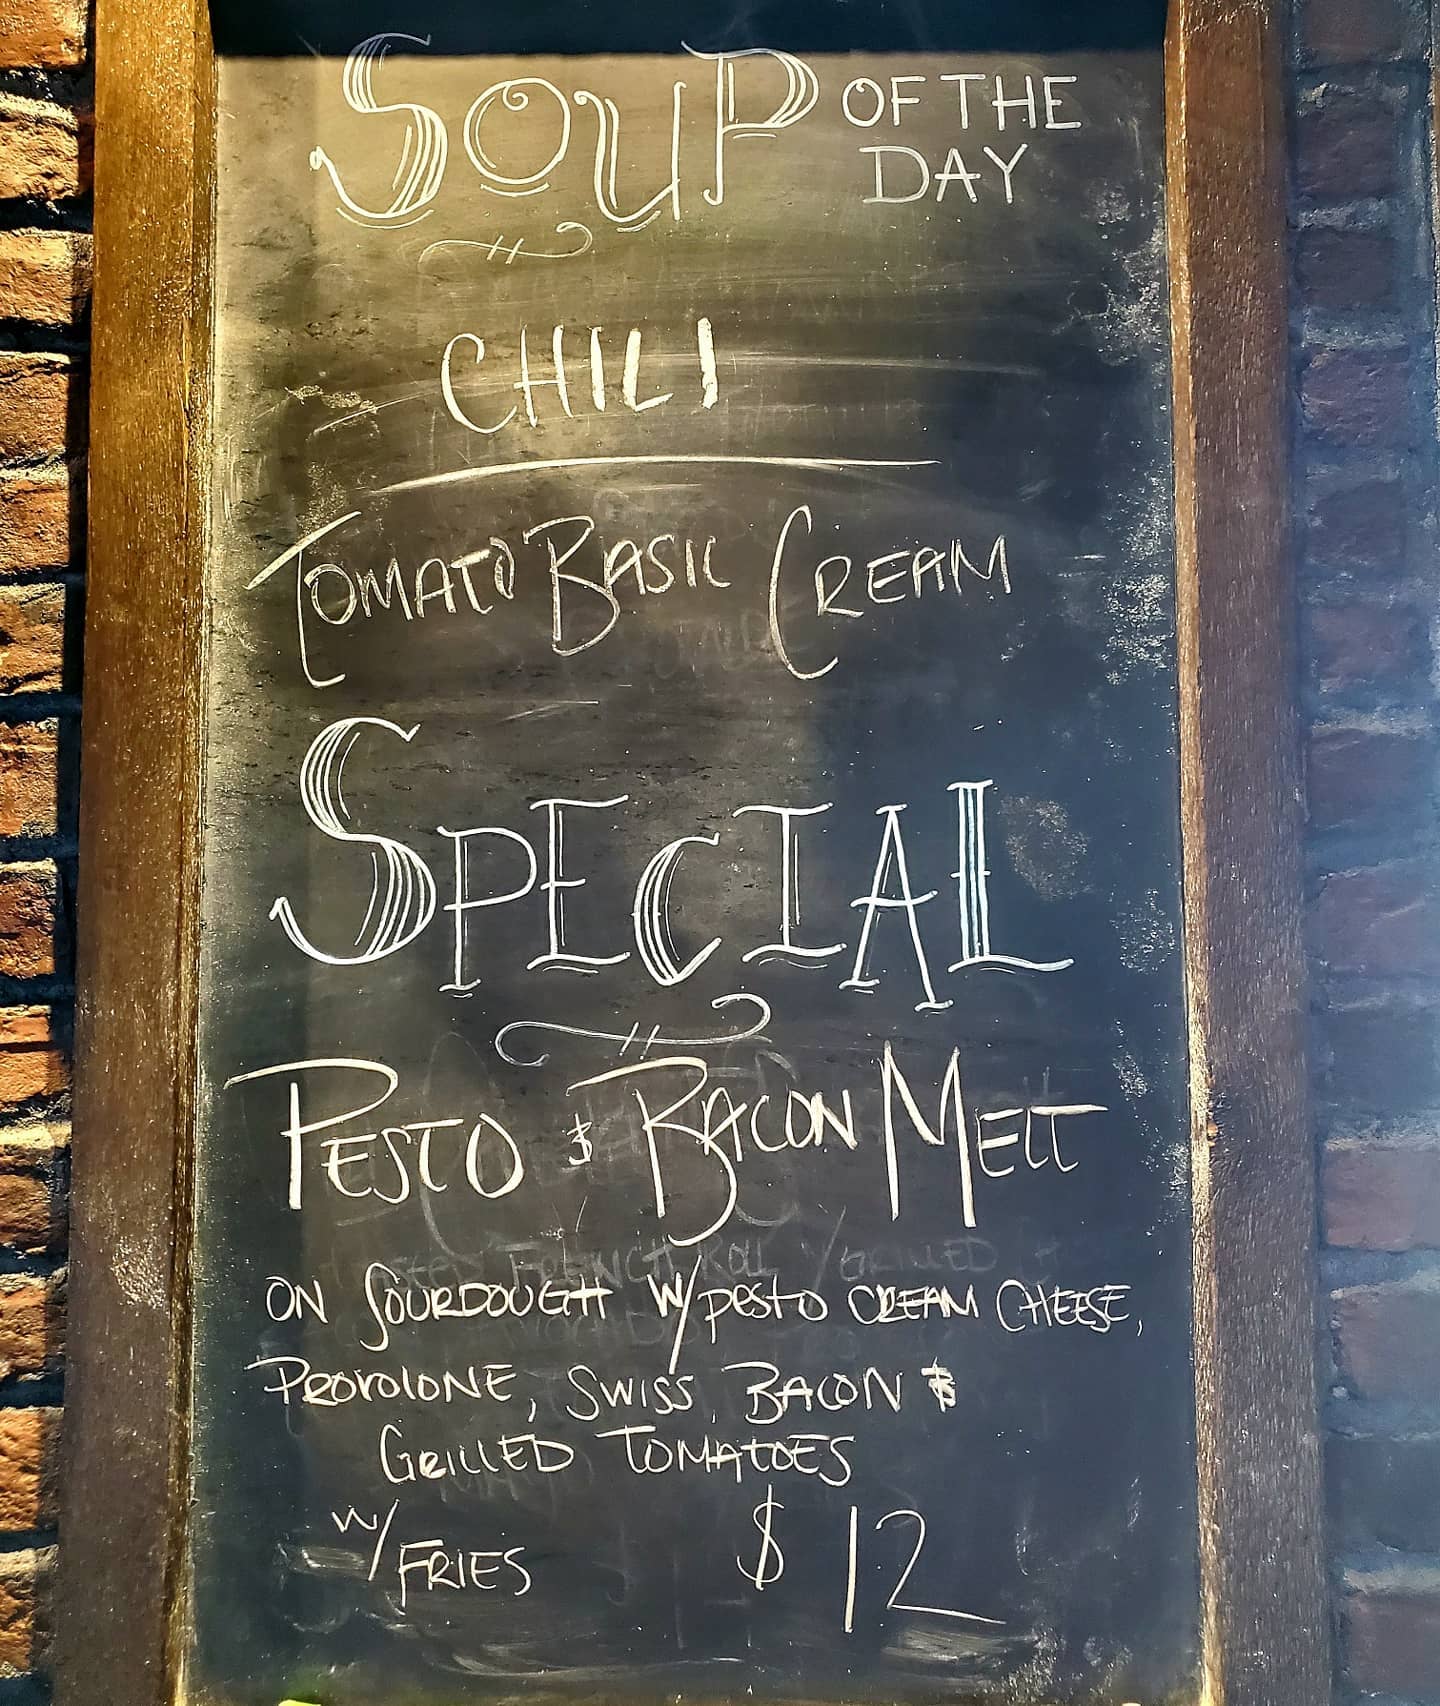 SOUP OF THE DAY
CHILI
TOMATO BASIC CREAM
SPECIAL
PESTO & BACON MELT
ON SOURDOUGH W/PESTO CREAM CHEESE,
PROVOLONE, SWISS, BACON &
GRILLED TOMATOES
W/FRIES $12